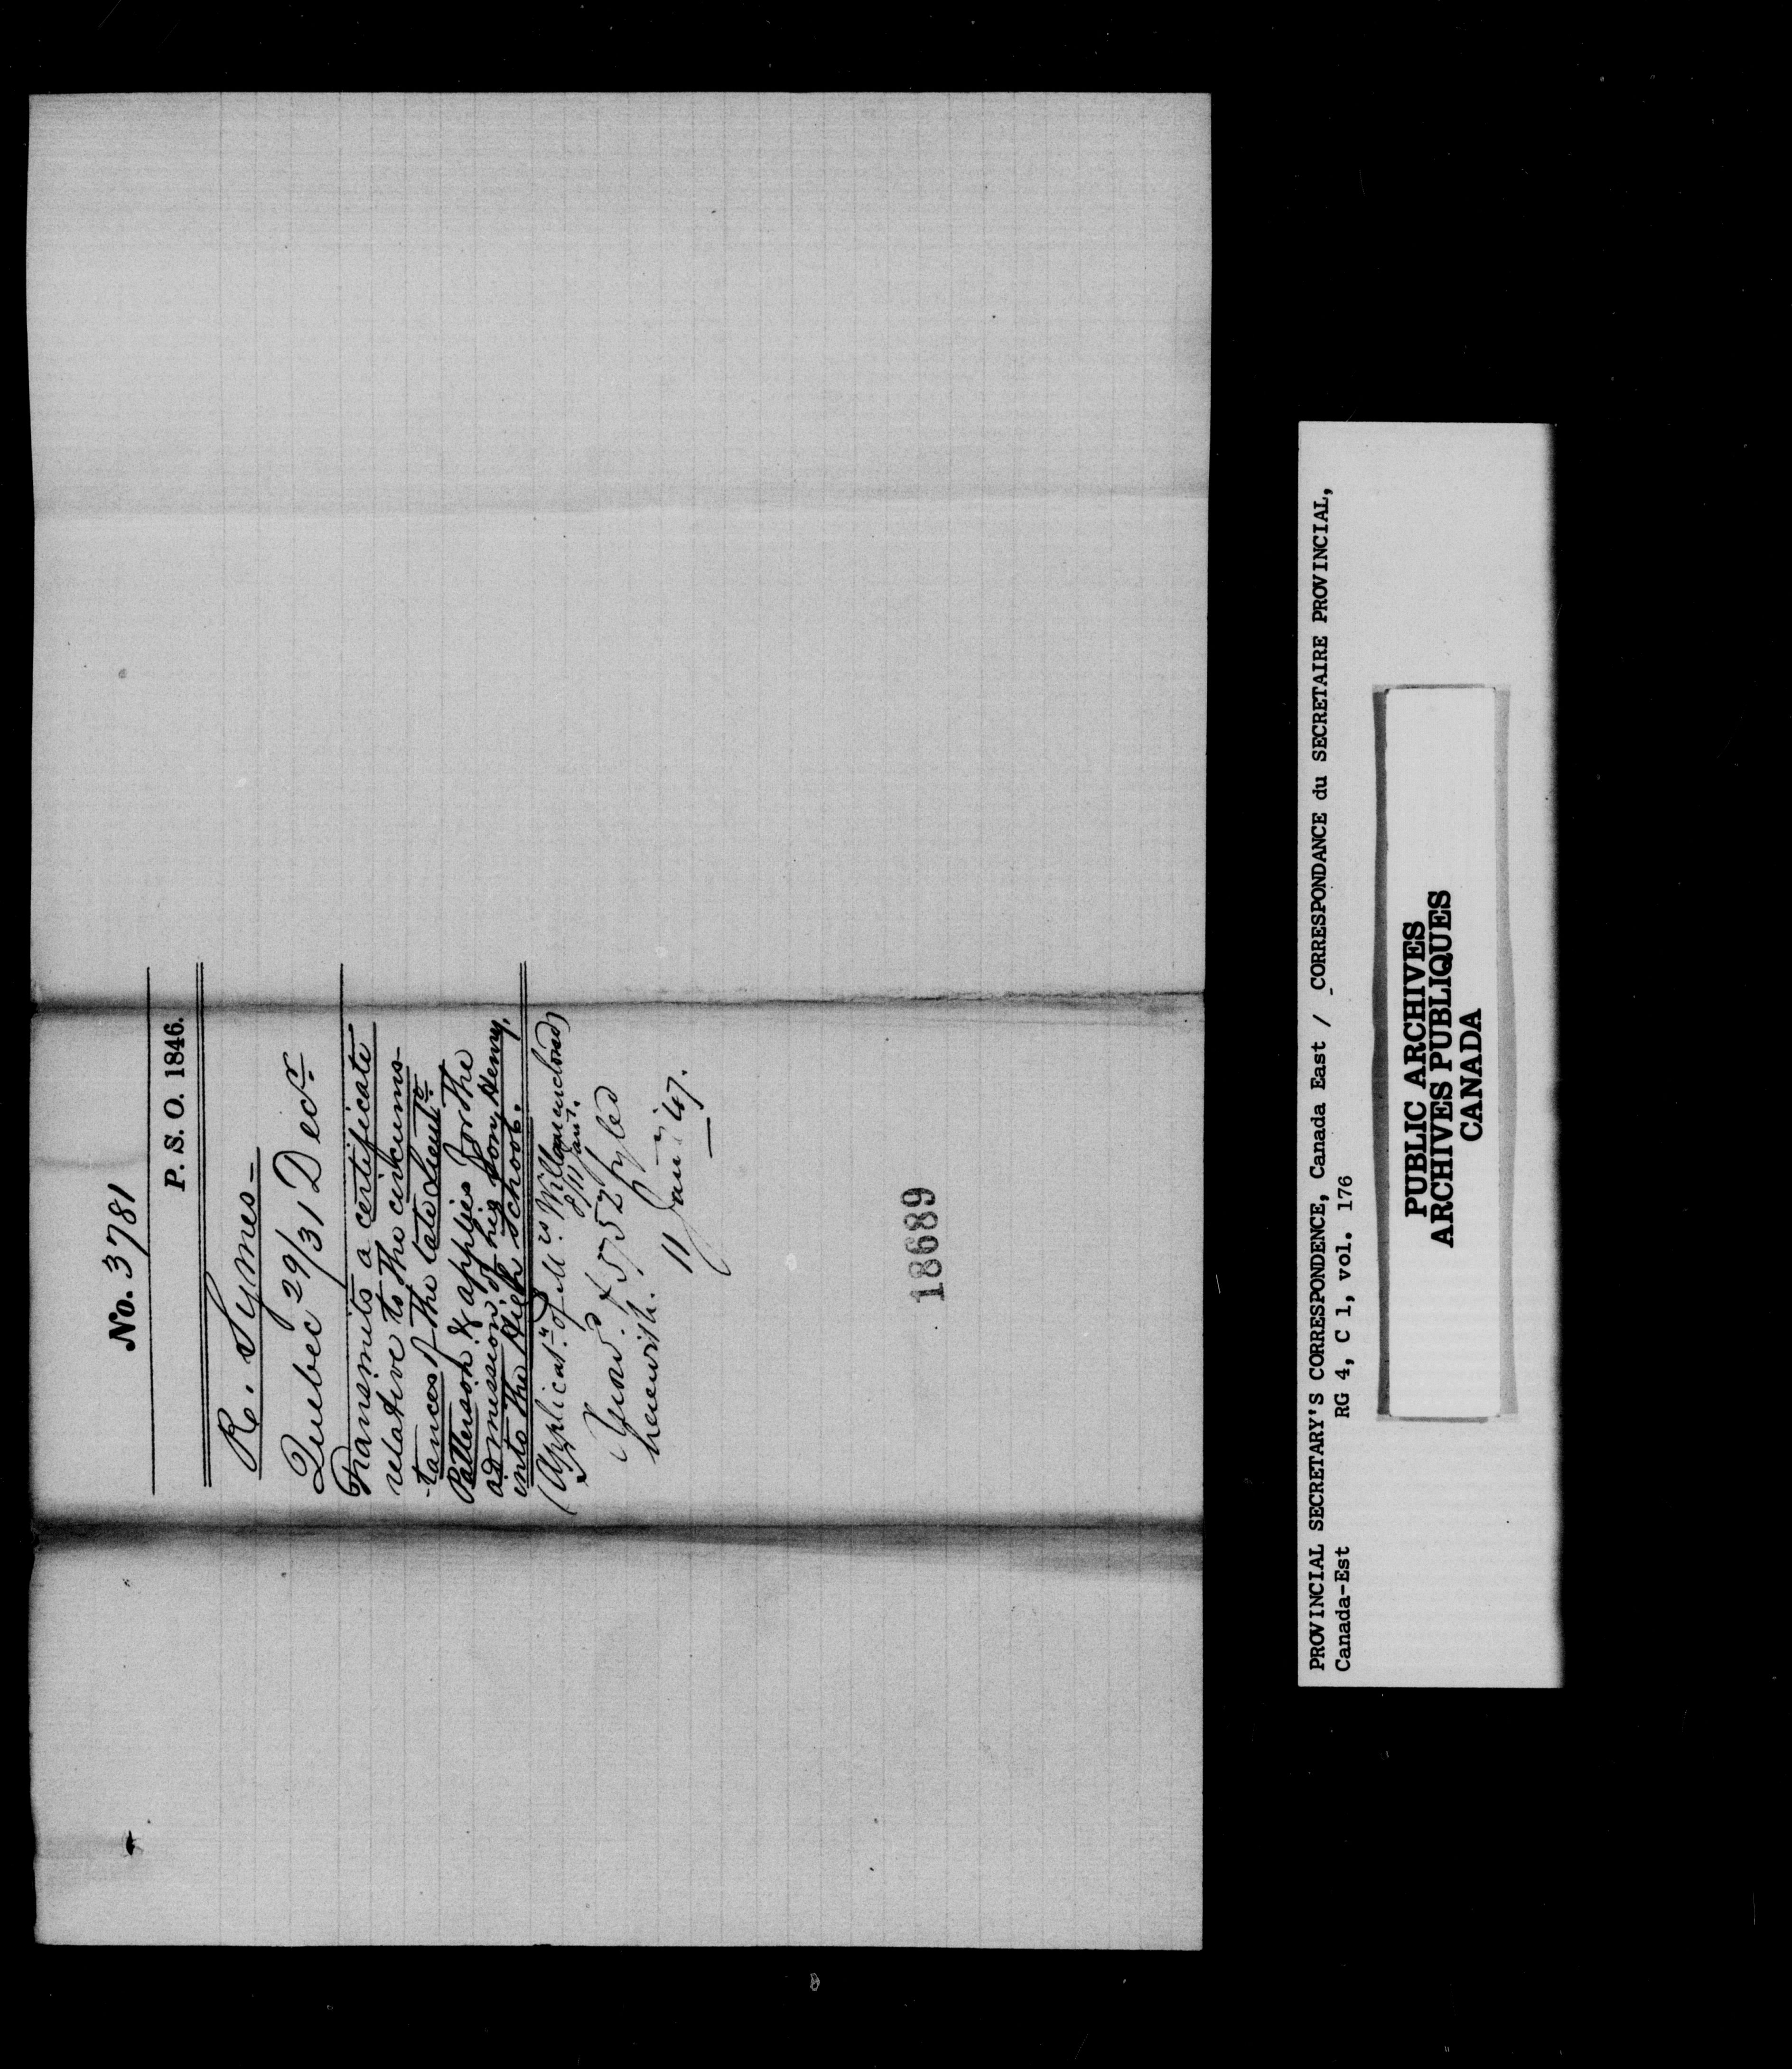 No. 3781
P. S. O. 1846.
R. Symes-
Quebec 29/31 Decr
Transmits a certificate
relative to the circums-
-tances of the late Lieutt
Patterson & applies for the
admission of his son, Henry,
into the High School.
(Applicatn of Mrs enclosed)
11 Jany.
& 5752 fyled
herewith.
11 Jany 47.
18689
PROVINCIAL SECRETARY'S CORRESPONDENCE, Canada East / CORRESPONDANCE du SECRETAIRE PROVINCIAL,
Canada-Est RG 4, C 1, vol. 176
PUBLIC ARCHIVES
ARCHIVES PUBLIQUES
CANADA